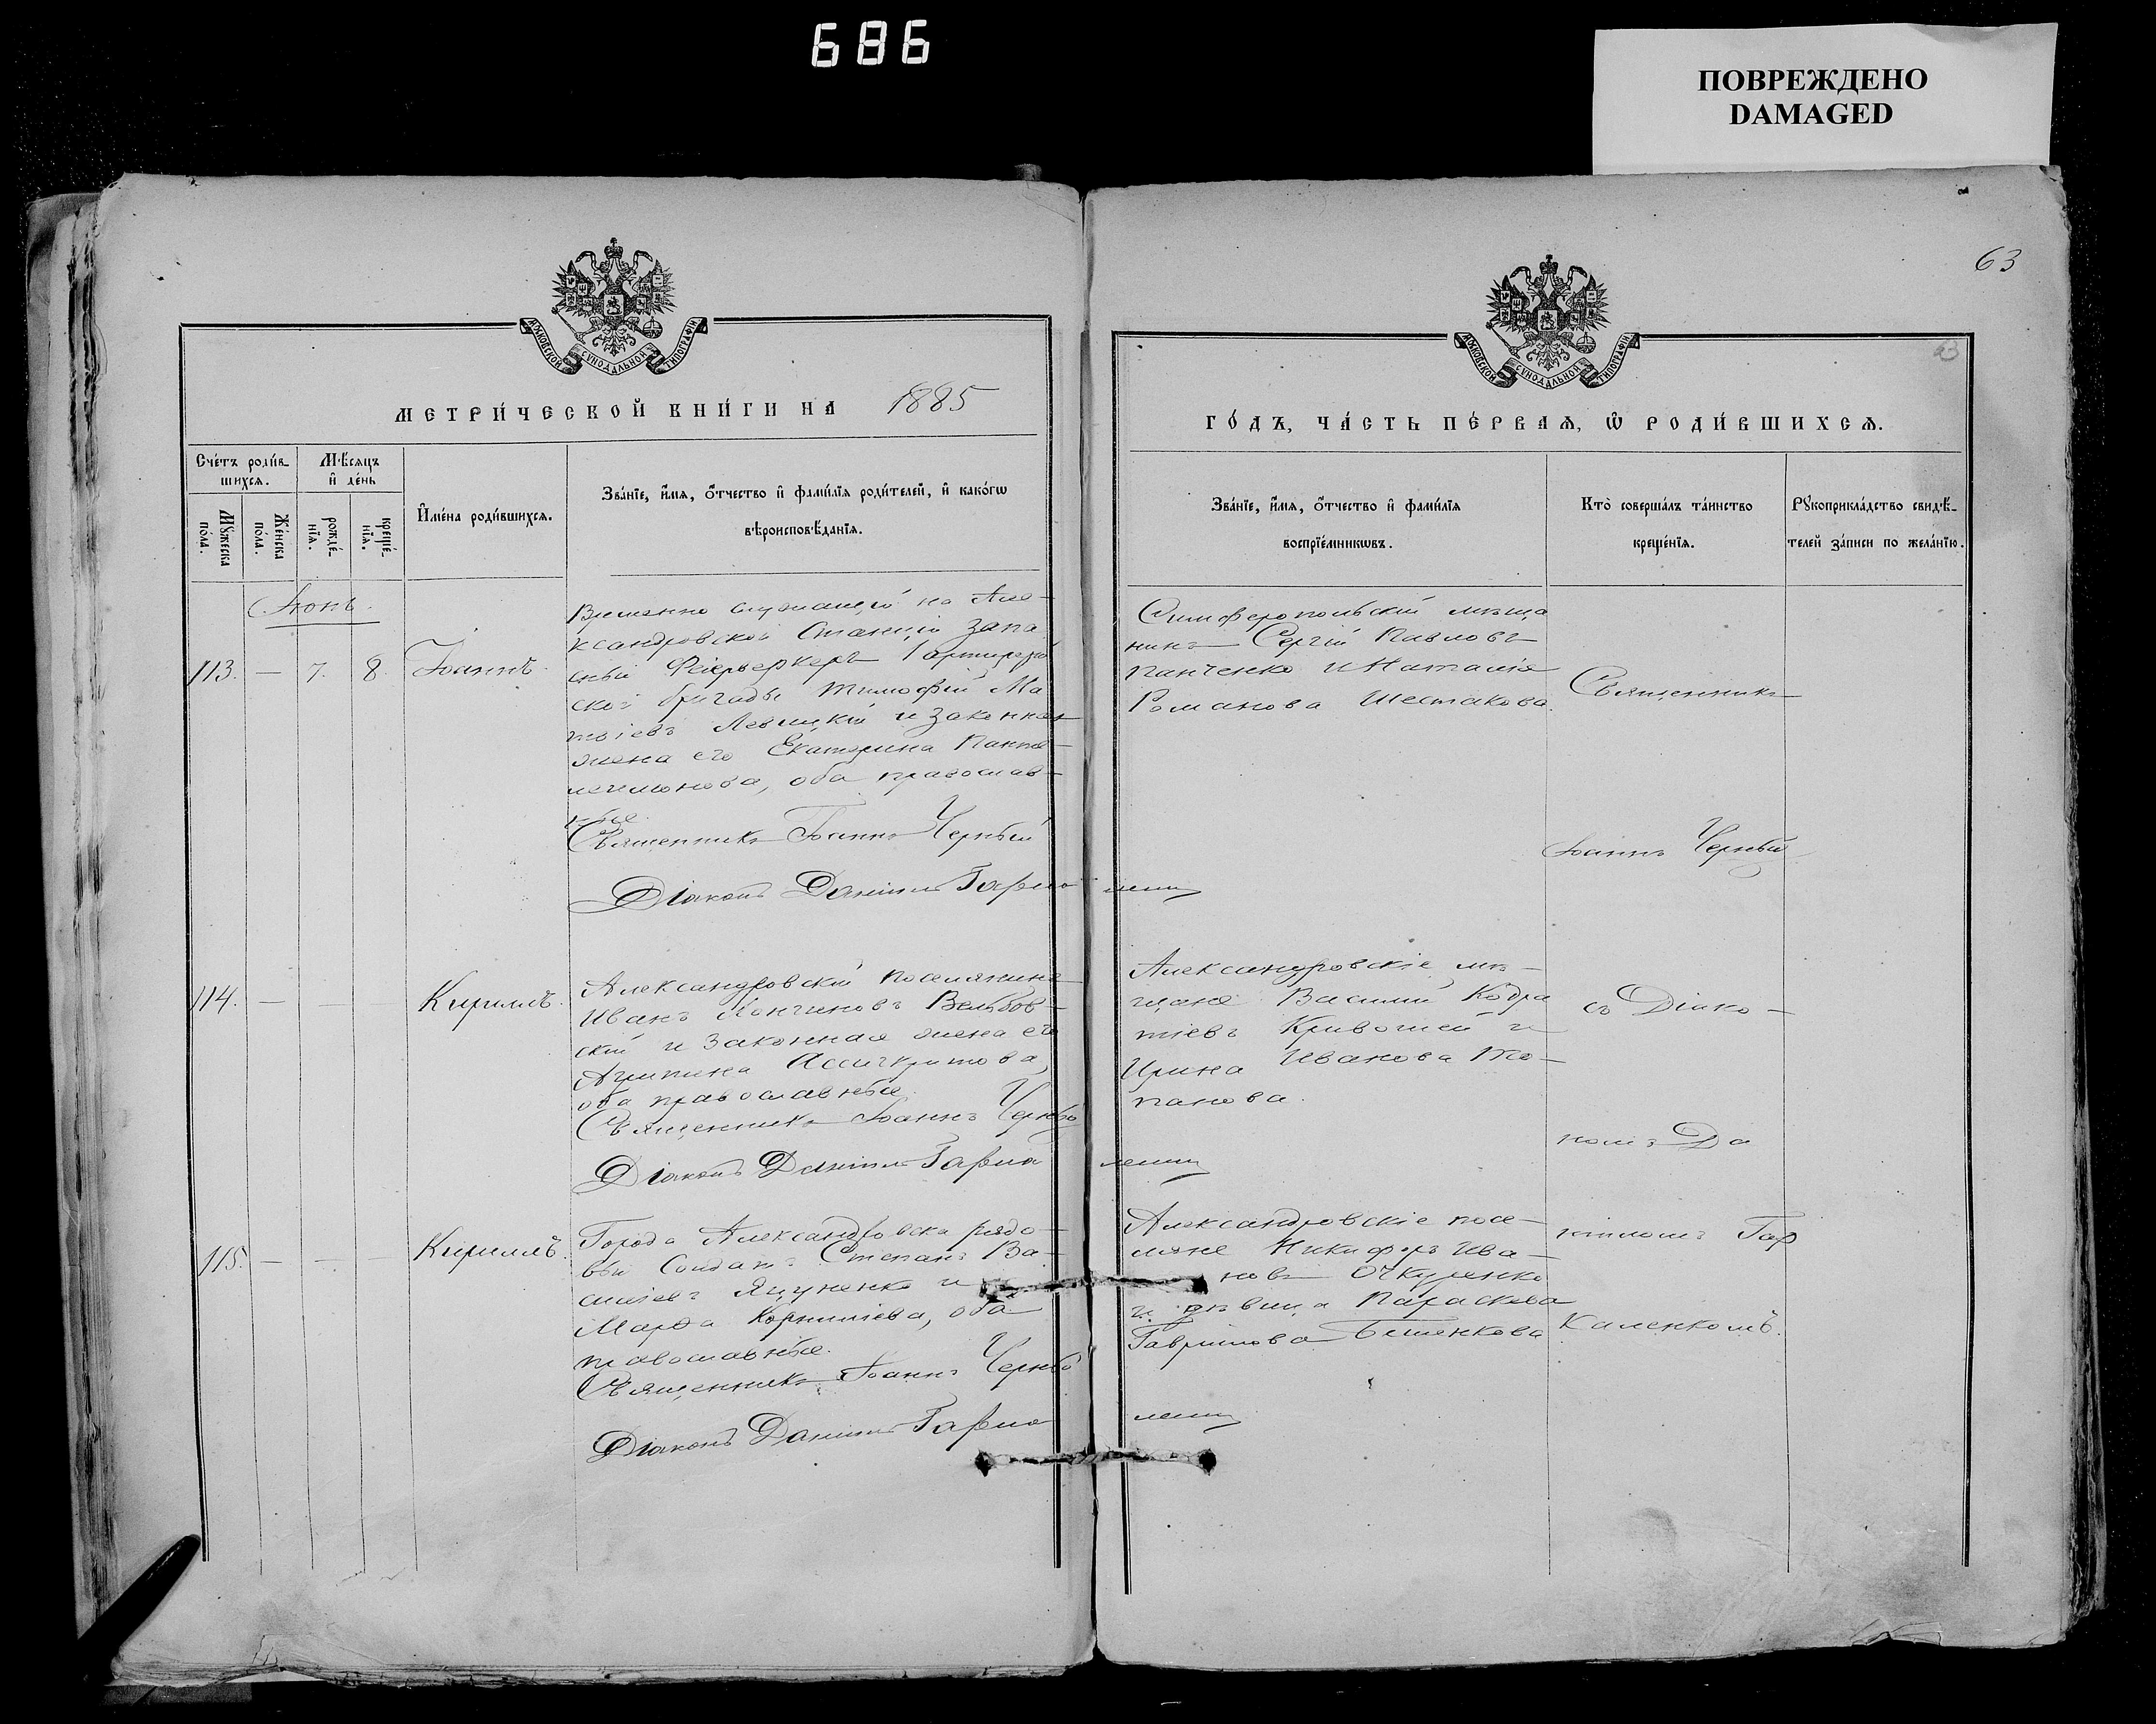 686
ПОВРЕЖДЕНО
DAMAGED
63
63
МОСКОВСКОЙ СѴНОДАЛЬНОЙ ТИПОГРАФІИ
МОСКОВСКОЙ СѴНОДАЛЬНОЙ ТИПОГРАФІИ
МЕТРИ́ЧЕСКОЙ КНИ́ГИ НА 1885
ГО́ДЪ, ЧА́СТЬ ПЕ́РВАѦ, Ѡ РОДИ́ВШИХСѦ.
Сче́тъ роди́в-
шихсѧ.
Мꙋжеска
по́ла.
Же́нска
по́ла.
Мѣ́сѧцъ
и҆ де́нь
рожде́-
нїѧ.
креще́-
нїѧ.
И҆мена̀ роди́вшихсѧ.
Зва́нїе, и҆́мѧ, ѻ҆́тчество и҆ фами́лїѧ роди́телей, и҆ како́гѡ
вѣроисповѣ́данїѧ.
Зва́нїе, и҆́мѧ, ѻ҆́тчество и҆ фами́лїѧ
воспрїе́мникѡвъ.
Кто̀ соверша́лъ та́инство
креще́нїѧ.
Рꙋкоприкла́дство свидѣ́-
телей за́писи по жела́нїю.
Іюнь.
113. — 7. 8. Іоаннъ.
Временно служащій на Але-
ксандровской Станціи запа
сный Фейерверкеръ 1 артиллерій
ской бригады Тимофей Ма
тѳіевъ Левицкій и законная
жена его Екатерина Панте-
леимонова, оба православ-
ные.
Священникъ Іоаннъ Черный
Діаконъ Даніилъ Гаркаленко
Симферопольскій мѣща
нинъ Сергій Павловъ
Панченко и Наталія
Романова Шестакова.
Священникъ
Іоаннъ Черный
114. — — — Кириллъ.
Александровскій поселянинъ
Иванъ Логгиновъ
скій и законная жена его
Агрипина Ассигкритова,
оба православные.
Священникъ Іоаннъ Черный
Діаконъ Даніилъ Гаркаленко
Александровскіе мѣ-
щане Василій Кодра
тіевъ Кривошей и
Ирина Иванова По-
панова.
съ Діако-
номъ Да
115. — — Кириллъ.
Города Александровска рядо-
вый Солдатъ Степанъ Ва-
силіевъ Яцуненко и
Марѳа Корниліева, оба
православные.
Священникъ Іоаннъ Черный
Діаконъ Даніилъ Гаркаленко
Александровскіе посе-
ляне Никифоръ Ива-
новъ Очкуренко
и дѣвица Параскева
Гаврилова Бешенкова
ніиломъ Гар
каленкомъ.